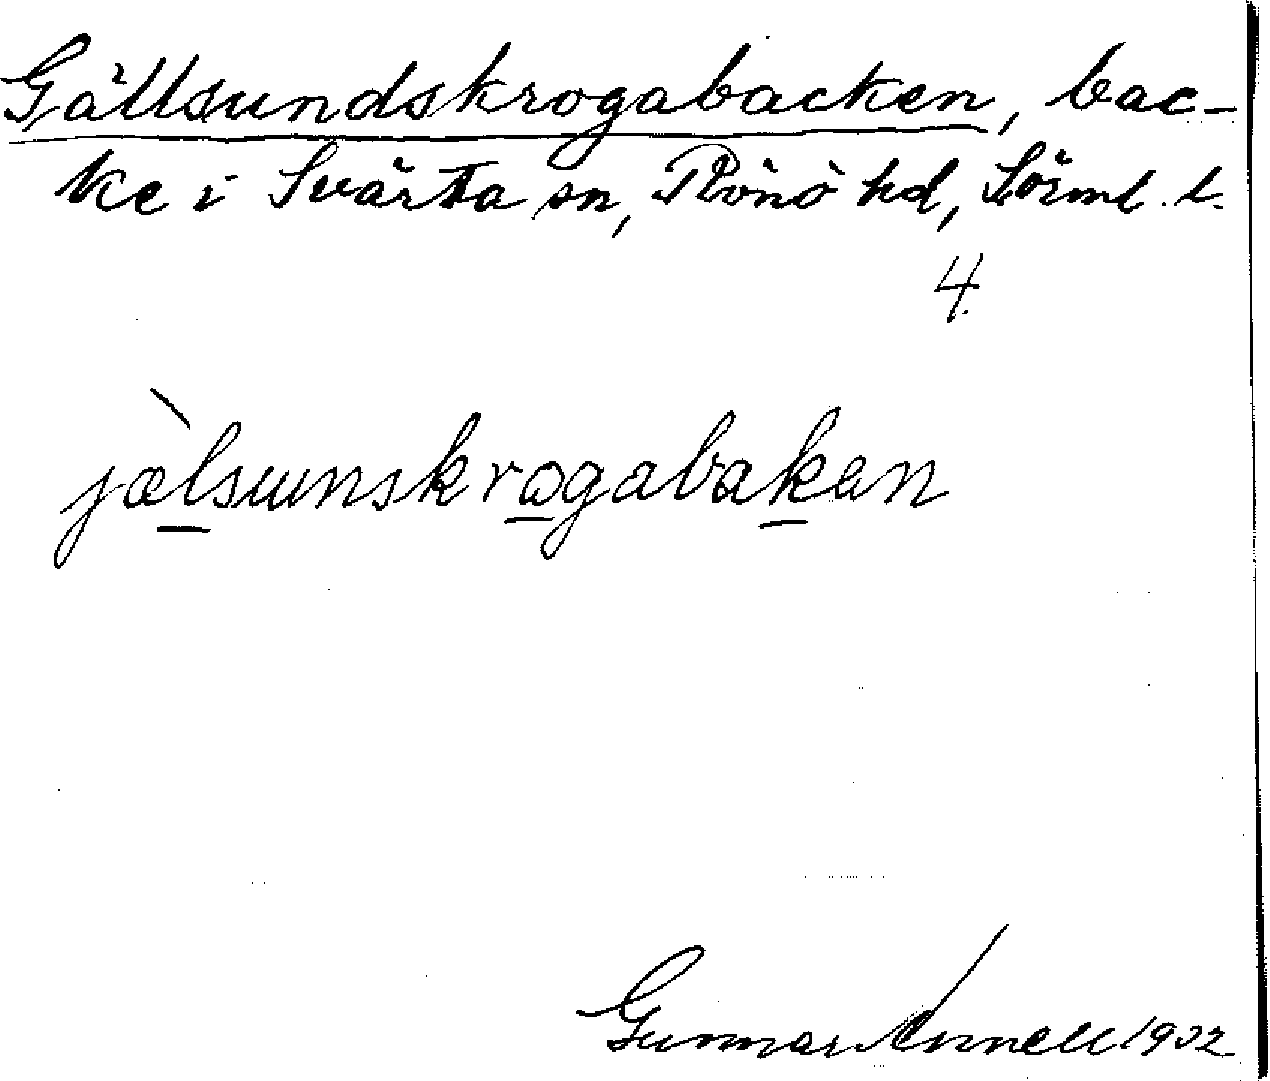 Gällsundskrogabacken, bac-
ke i Svärta sn, Rönö hd, Sörml. l.
4
jæ̀lsunskrogabakan
Gunnar Annell 1932